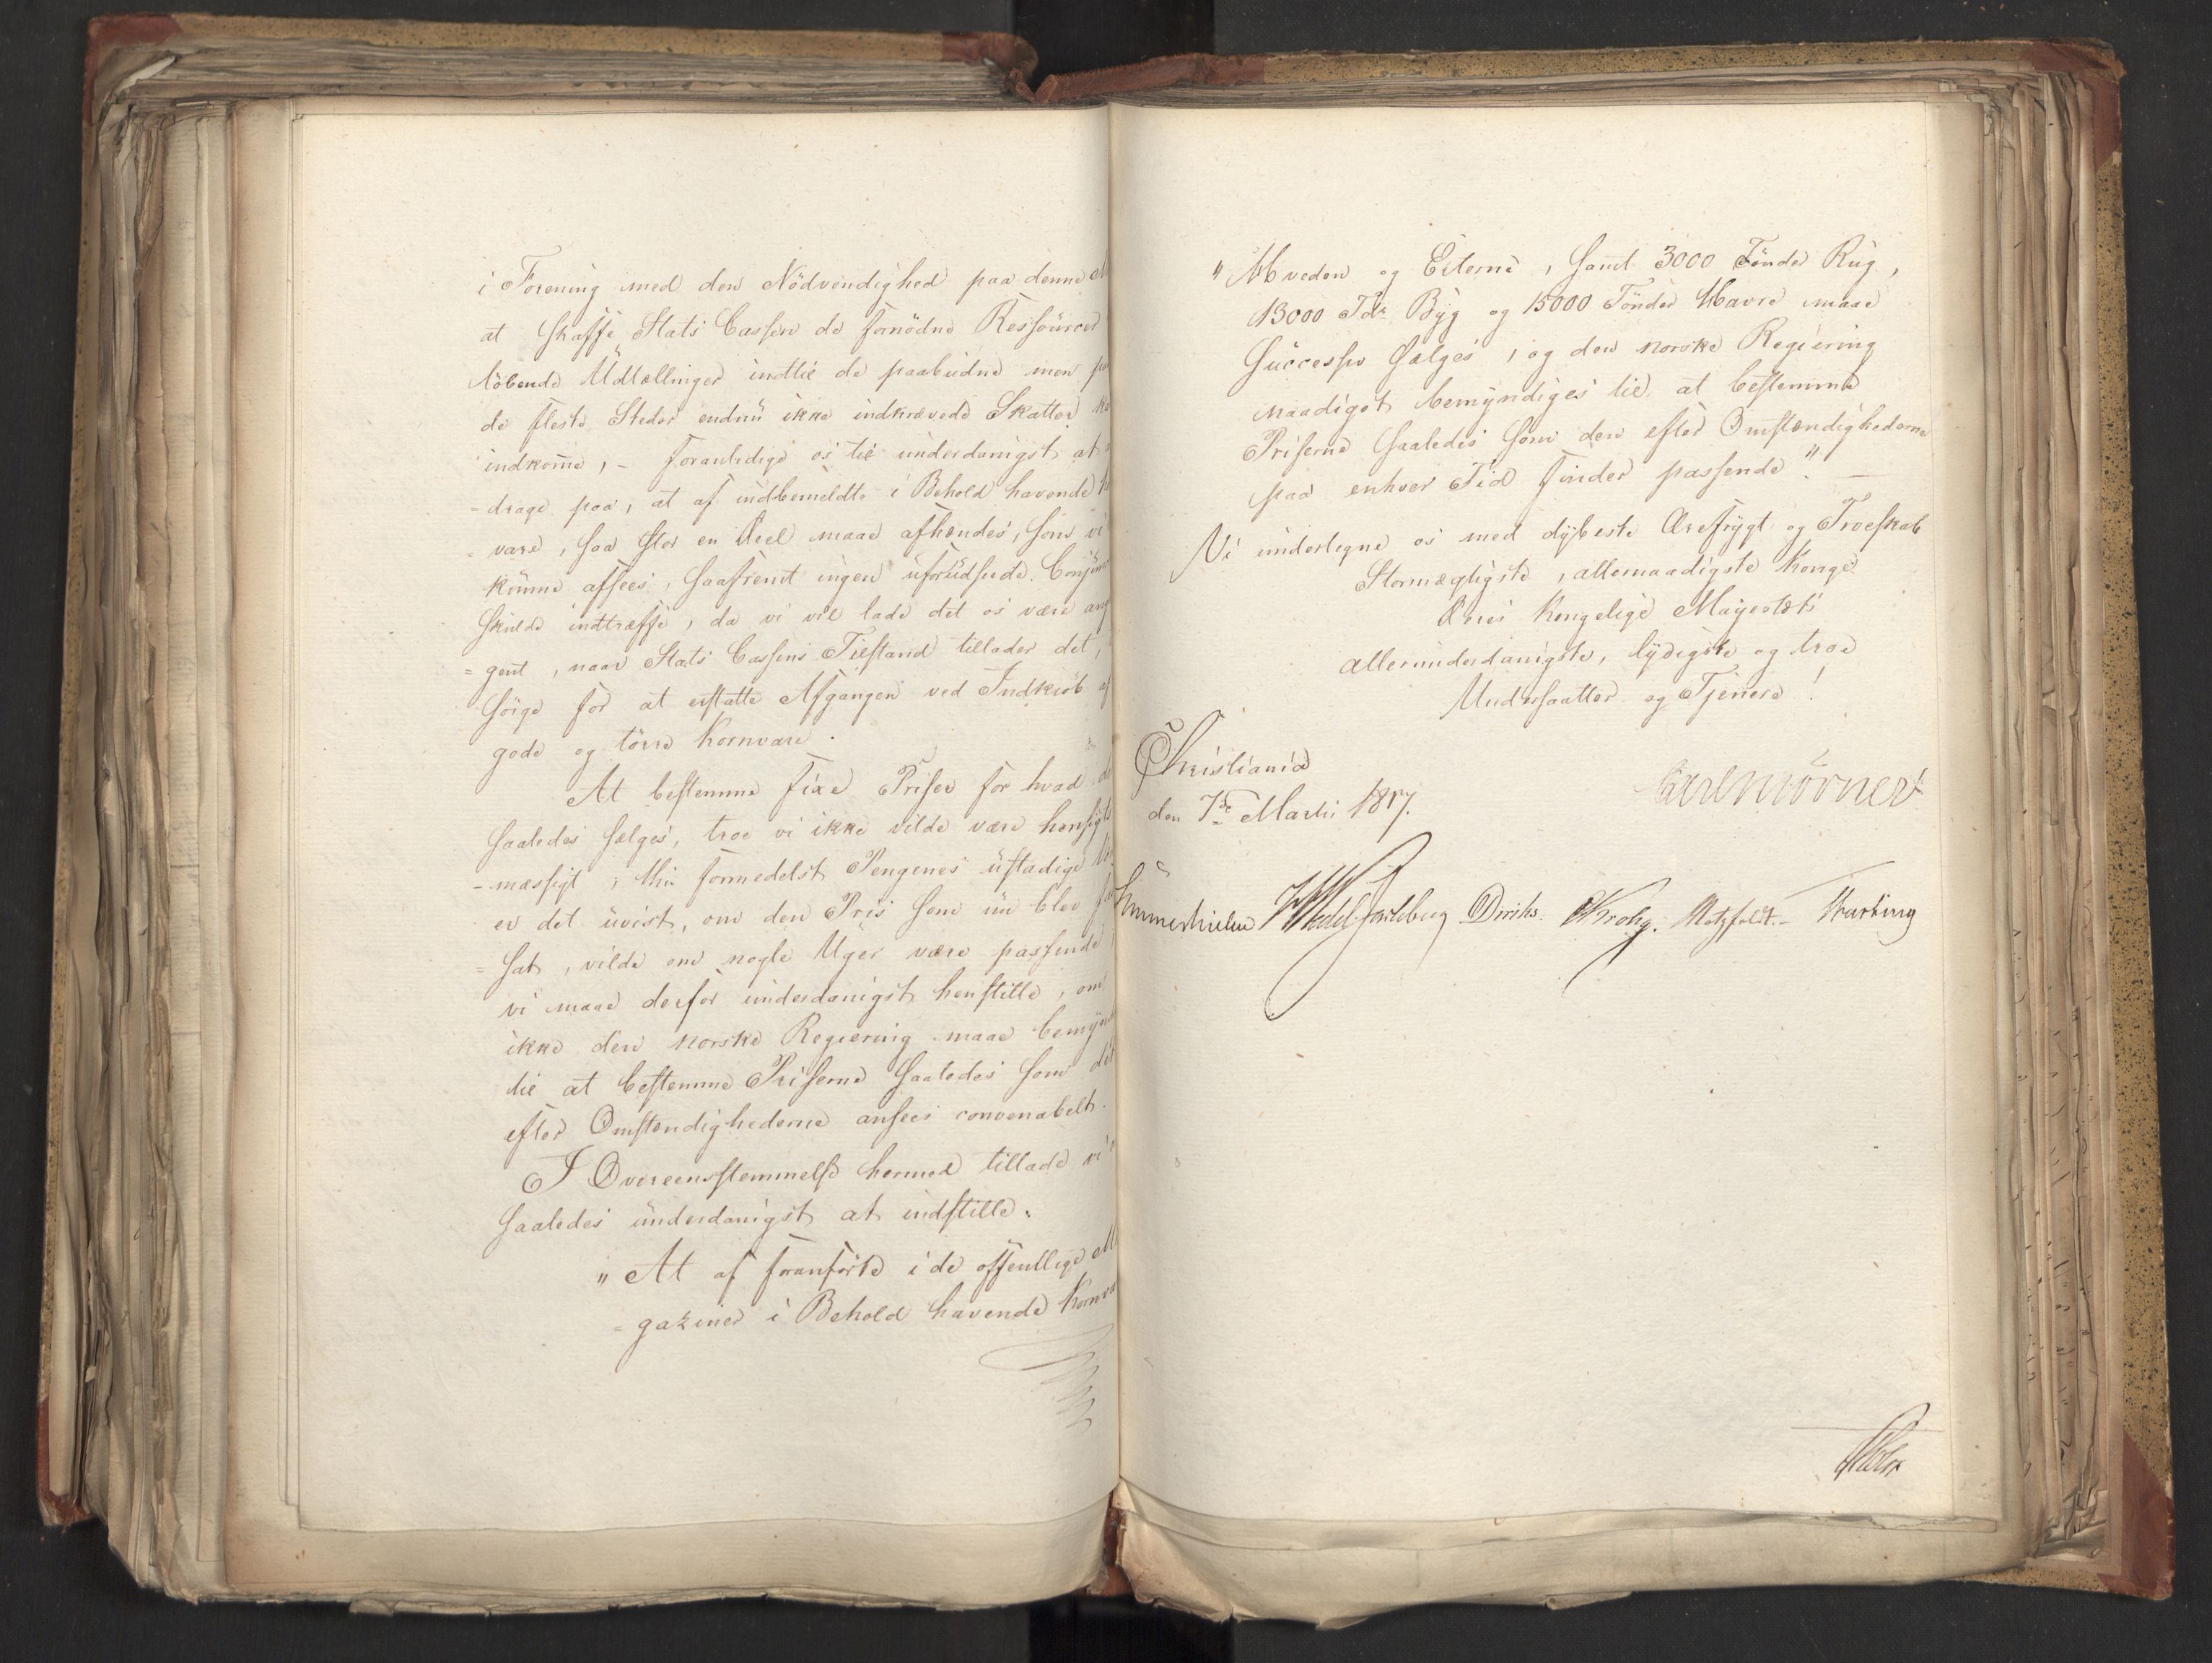 i Forening med den Nödvendighed paa denne
at skaffe Stats Cassen de fornödne Ressourcer
löbende Udtællinger indtil de paabudne men
de fleste Steder endnu ikke indkrævede Skatter
indkom̅e, – foranledige os til underdanigst at
-drage paa, at af indbemeldte i Behold havende
-vare, saa stor en Deel maae afhændes, som vi
kunne afsees, saafremt ingen uforudseede
skulde indtræffe, da vi vil lade det os være
=gent, naar Stats Cassens Tilstand tillader det,
sörge for at erstatte Afgangen ved Indkiöb af
gode og törre Kornvare.
At bestemme fixe Priser for hvad
saaledes sælges, troe vi ikke vilde være hensigts
-mæssigt; thi formedelst Pengenes ustadige
er det uvist, om den Pris som nu blev
=sat, vilde om nogle Uger være passende
vi maae derfor underdanigst henstille, om
ikke den norske Regiering maae
til at bestemme Priserne saaledes som det
efter Omstændighederne ansees convenabelt.
I Overeensstemmelse hermed tillade vi
saaledes underdanigst at indstille:
"At af foranförte i de offentlige
=gaziner i Behold havende
"Hveden og Erterne, samt 3000 Tönder Rug,
13000 Tdr Byg og 15000 Tönder Havre maae
successiv sælges, og den norske Regiering
naadigst bemyndiges til at bestemme
Priserne saaledes som den efter Omstændighederne
paa enhver Tid finder passende". –
Vi undertegne os med dybeste Ærefrygt og Troeskab
Stormægtigste, allernaadigste Konge
Deres Kongelige Majestæts
allerunderdanigste, lydigste og troe
Undersaatter og Tjenere!
Christiania
den 7de Martii 1817.
Carl Mörner
Sommerhielm Wedel Jarlsberg Diriks. CKrohg. Motzfeldt.– Krarting
Holst